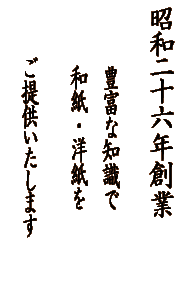 昭和二十六年創業
豊富な知識で
和紙・洋紙を
ご提供いたします